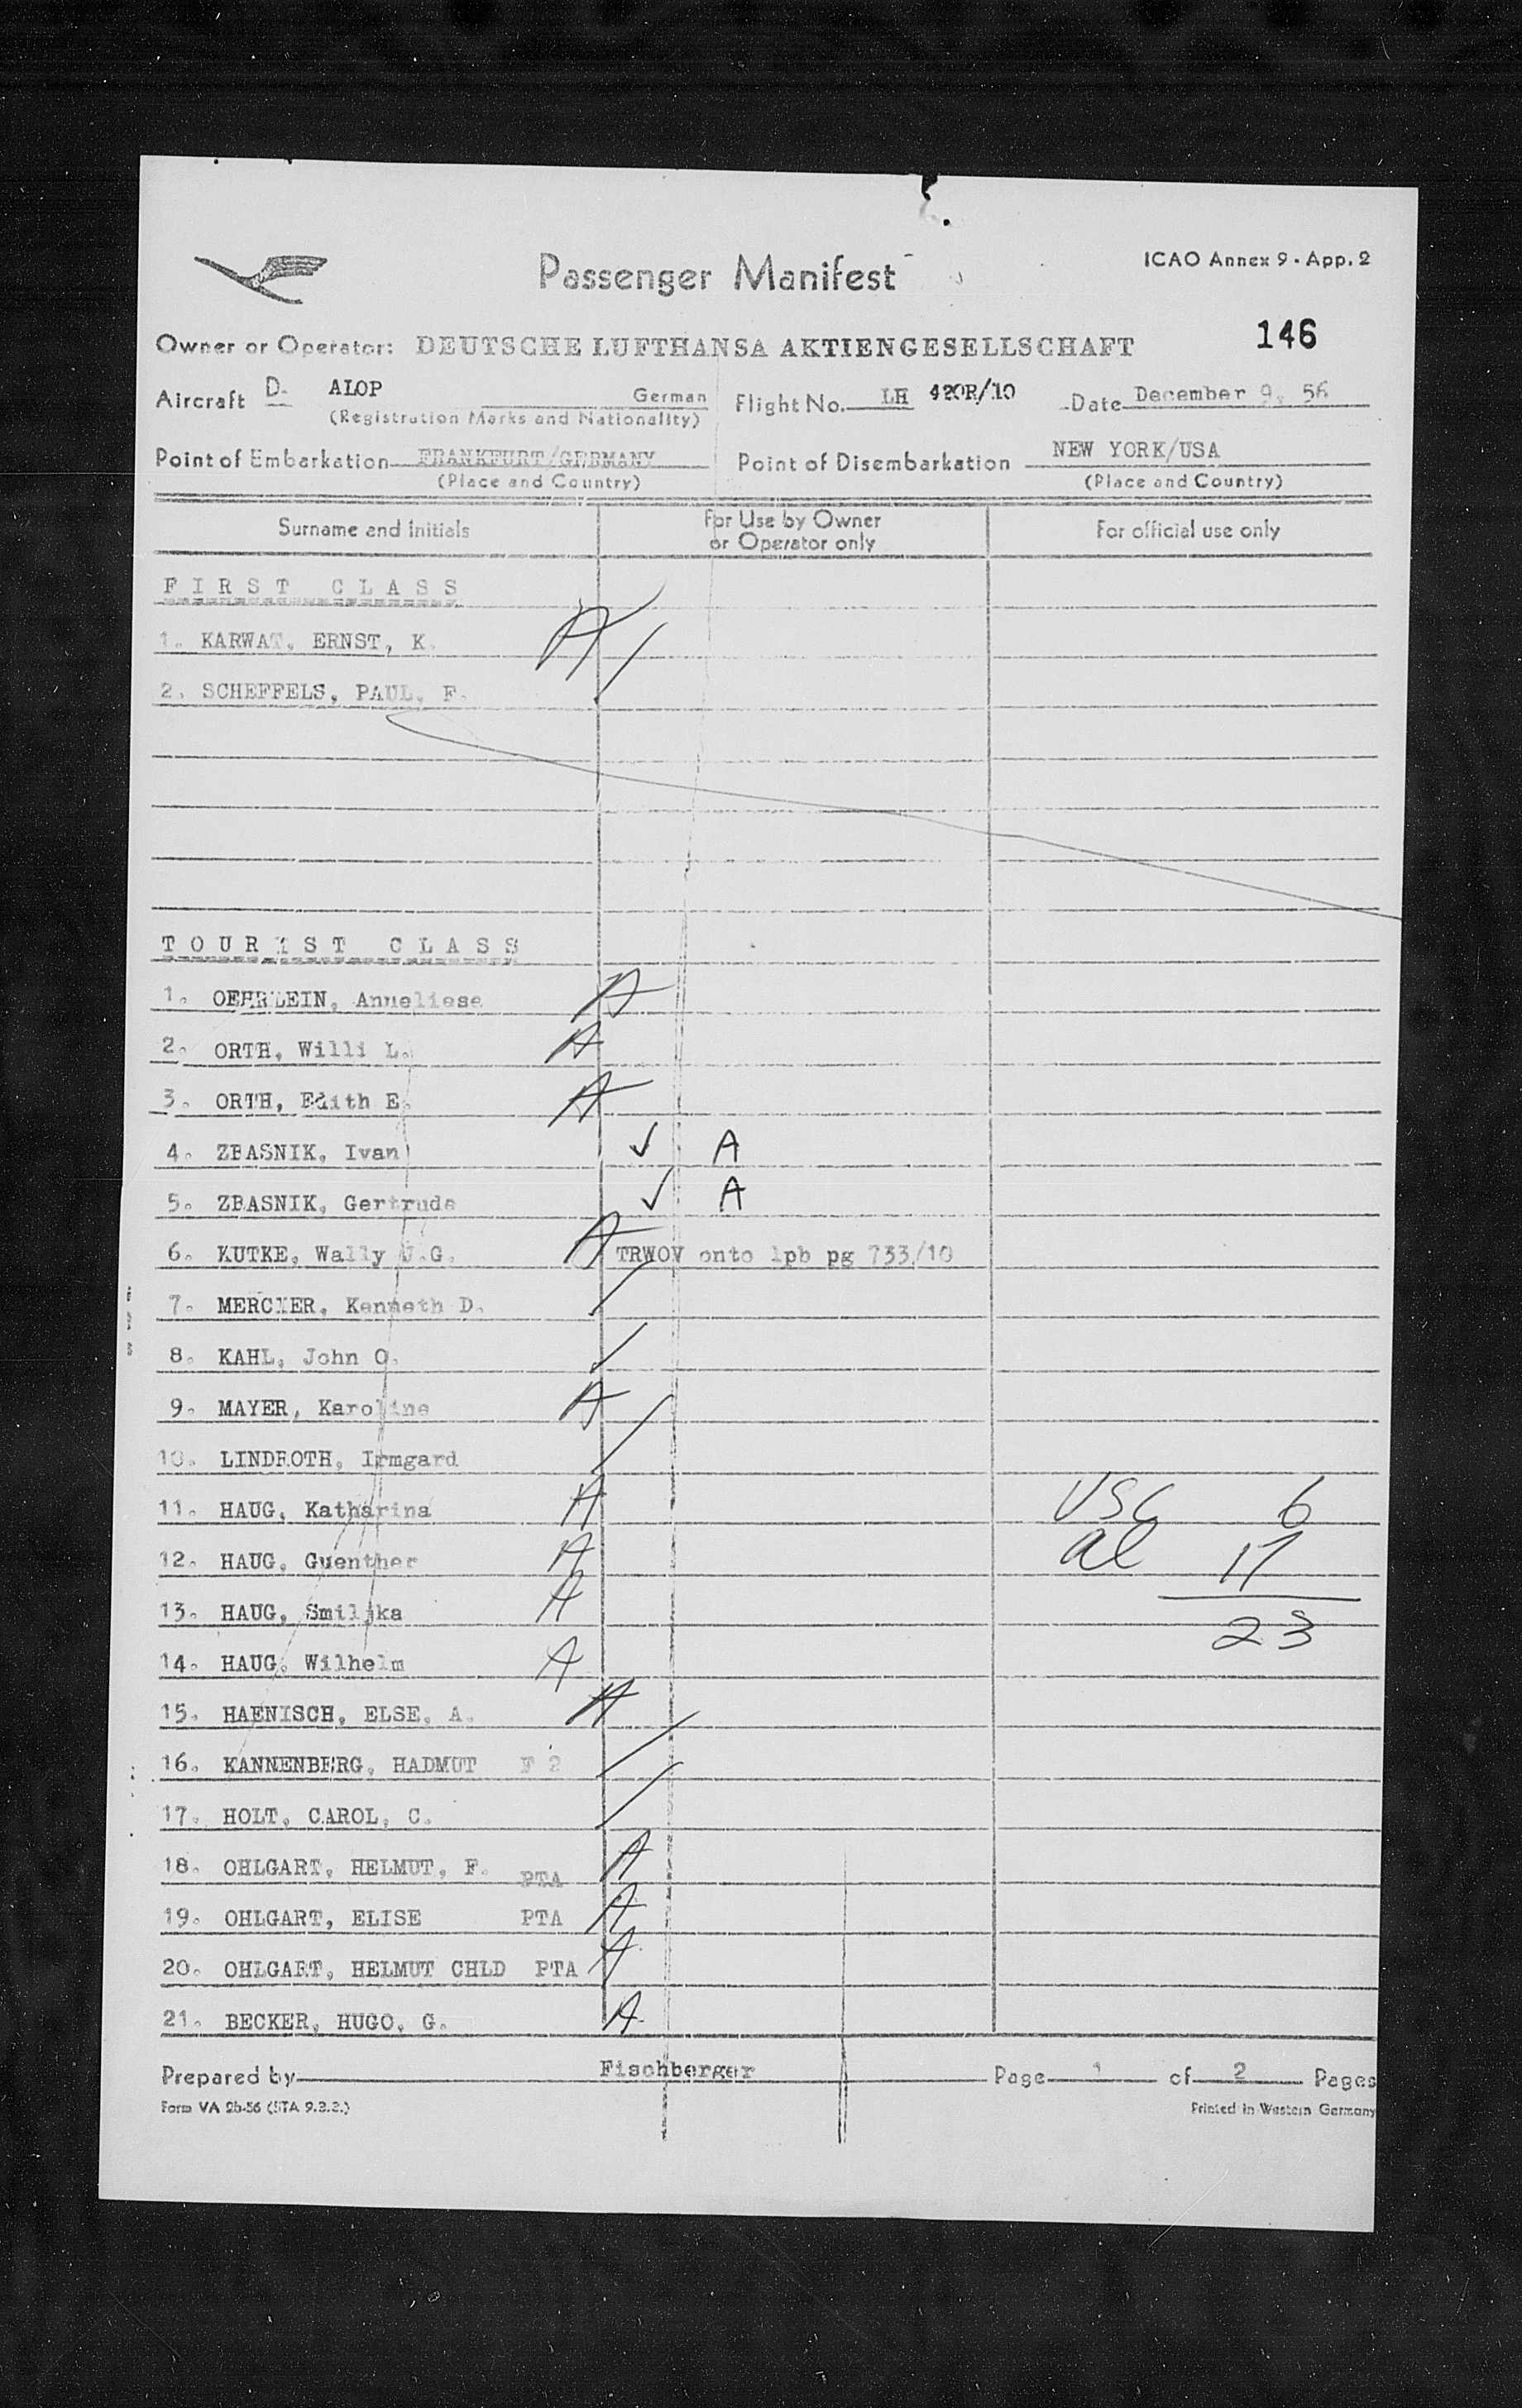 Passenger Manifest
ICAO Annex 9 - App. 2
Owner or Operator: DEUTSCHE LUFTHANSA AKTIENGESELLSCHAFT 146
Aircraft D- ALOP German Flight No. LH 420R/10 Date December 9, 56
(Registration Marks and Nationality)
Point of Embarkation FRANKFURT/GERMANY Point of Disembarkation NEW YORK/USA
(Place and Country) (Place and Country)
Surname and Initials For Use by Owner or Operator only For official use only
FIRST CLASS
1. KARWAT, ERNST, K. A
2. SCHEFFELS, PAUL, F.
TOURIST CLASS
1. OEHRLEIN, Anneliese A
2. ORTH, Willi L. A
3. ORTH, Edith E. A
4. ZBASNIK, Ivan ✓ A
5. ZBASNIK, Gertrude ✓ A
6. KUTKE, Wally J.G. A TRWOV onto lpb pg 733/10
7. MERCIER, Kenneth D.
8. KAHL, John O.
9. MAYER, Karoline A
10. LINDROTH, Irmgard
11. HAUG, Katharina A USC 6
12. HAUG, Guenther A al 17
13. HAUG, Smiljka A 23
14. HAUG, Wilhelm A
15. HAENISCH, ELSE, A. A
16. KANNENBERG, HADMUT F 2
17. HOLT, CAROL, C.
18. OHLGART, HELMUT, F. PTA A
19. OHLGART, ELISE PTA A
20. OHLGART, HELMUT CHLD PTA A
21. BECKER, HUGO, G. A
Prepared by Fischberger Page 1 of 2 Pages
Form VA 2b-56 (STA 9.2.2.) Printed in Western Germany